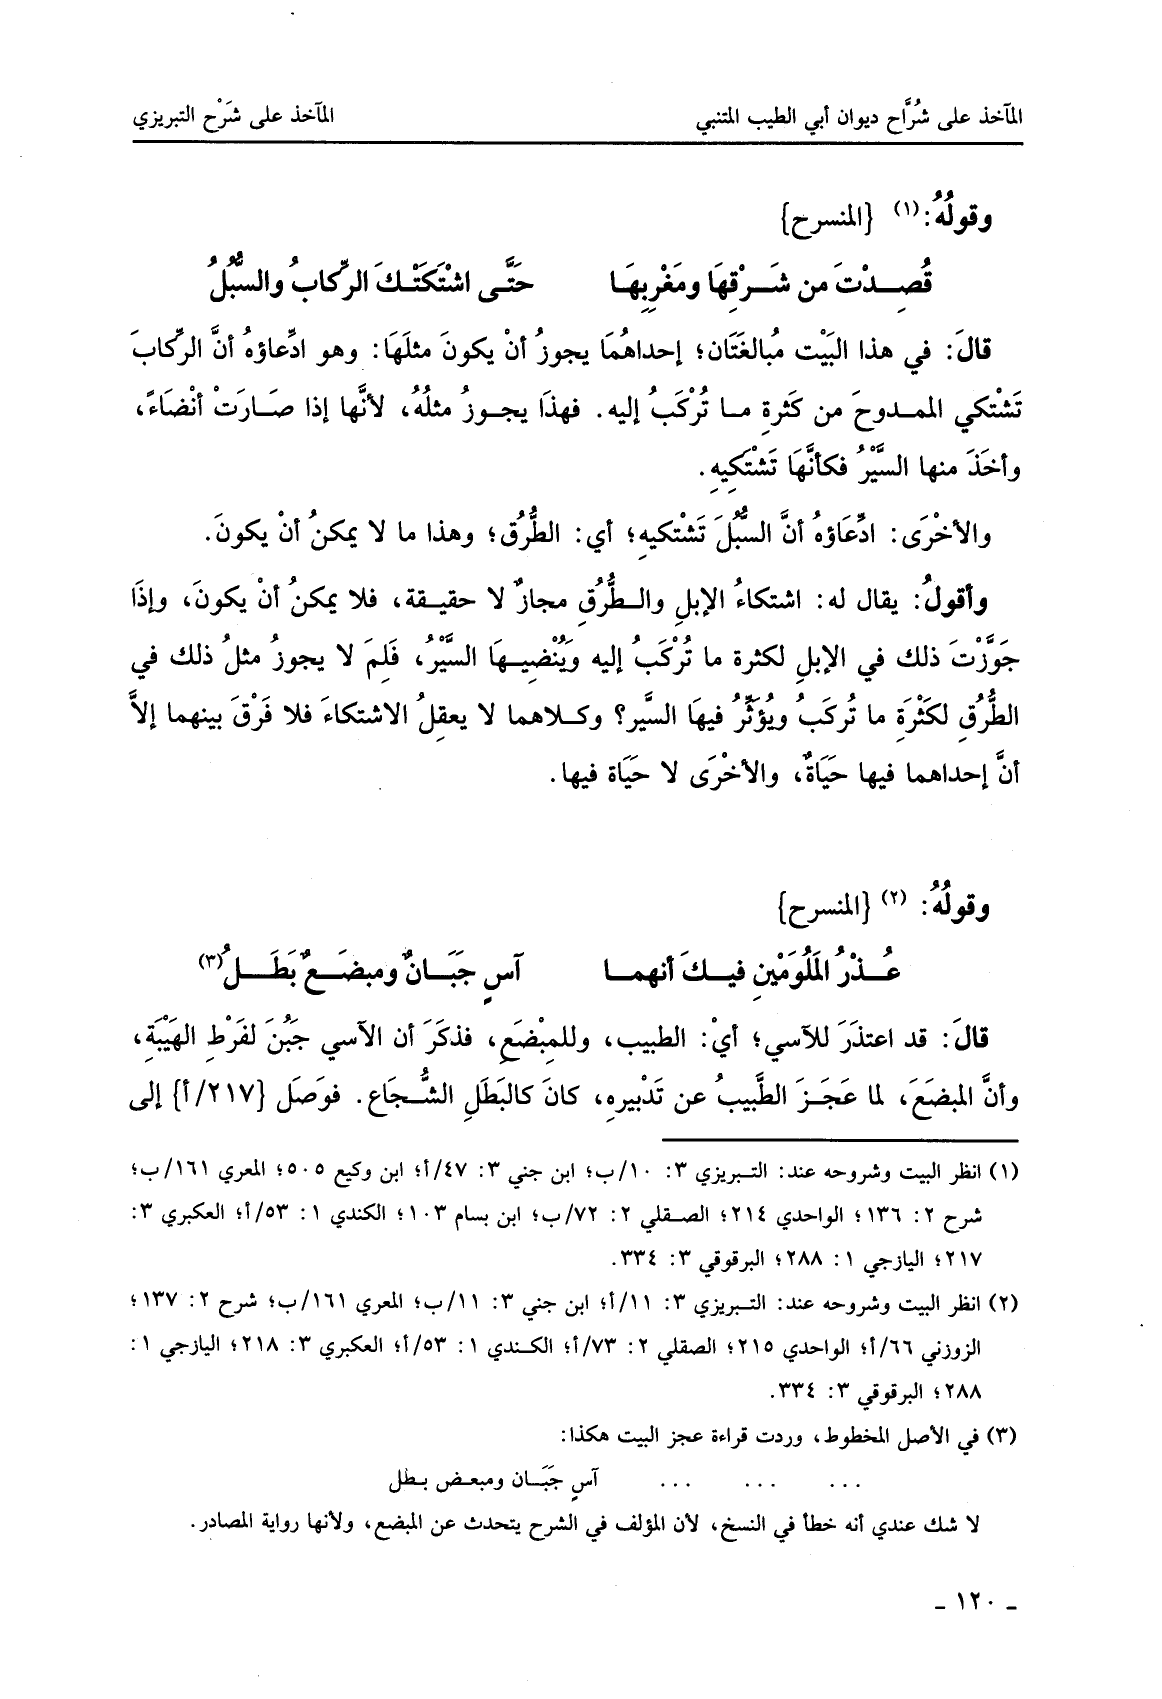 المآخذ على شُرَّاح ديوان أبي الطيب المتنبي المآخذ على شَرْح التبريزي
وقولُهُ: (١) {المنسرح}
قُصِدْتَ من شَرْقِهَا ومَغْرِبِهَا حَتَّى اشْتَكَتْكَ الرِّكابُ والسُّبُلُ
قالَ: في هذا البَيْت مُبالغَتَان؛ إحداهُمَا يجوزُ أنْ يكونَ مثلَهَا: وهو ادِّعاؤهُ أنَّ الرِّكابَ
تَشْتكي الممدوحَ من كَثرةِ ما تُرْكَبُ إليه. فهذَا يجوزُ مثلُهُ، لأنَّها إذا صَارَتْ أنْضَاءً،
وأخَذَ منها السَّيْرُ فكأنَّهَا تَشْتَكِيهِ.
والأخْرَى: ادِّعَاؤهُ أنَّ السُّبُلَ تَشْتكيهِ؛ أي: الطُّرُق؛ وهذا ما لا يمكنُ أنْ يكونَ.
وأقولُ: يقال له: اشتكاءُ الإبلِ والطُّرُقِ مجازٌ لا حقيقة، فلا يمكنُ أنْ يكونَ، وإذَا
جَوَّزْتَ ذلك في الإبلِ لكثرة ما تُرْكَبُ إليه وَيُنْضِيهَا السَّيْرُ، فَلِمَ لا يجوزُ مثلُ ذلك في
الطُّرُقِ لكَثْرَةِ ما تُركَبُ ويُؤثِّرُ فيهَا السَّير؟ وكلاهما لا يعقِلُ الاشتكاءَ فلا فَرْقَ بينهما إلاَّ
أنَّ إحداهما فيها حَيَاةٌ، والأخْرَى لا حَيَاة فيها.
وقولُهُ: (٢) {المنسرح}
عُذْرُ المَلُومَيْنِ فيكَ أنهما آسٍ جَبَانٌ ومبضَعٌ بَطَلُ(٣)
قالَ: قد اعتذَرَ للآسي؛ أيْ: الطبيب، وللمِبْضَعِ، فذكَرَ أن الآسي جَبُنَ لفَرْطِ الهَيْبَةِ،
وأنَّ المبضَعَ، لما عَجَزَ الطَّبيبُ عن تَدْبيرِهِ، كانَ كالبَطَلِ الشُّجَاع. فوَصَل {٢١٧/أ} إلى
(١) انظر البيت وشروحه عند: التبريزي ٣: ١٠/ب؛ ابن جني ٣: ٤٧/أ؛ ابن وكيع ٥٠٥؛ المعري ١٦١/ب؛
شرح ٢: ١٣٦؛ الواحدي ٢١٤؛ الصقلي ٢: ٧٢/ب؛ ابن بسام ١٠٣؛ الكندي ١: ٥٣/أ؛ العكبري ٣:
٢١٧؛ اليازجي ١: ٢٨٨؛ البرقوقي ٣: ٣٣٤.
(٢) انظر البيت وشروحه عند: التبريزي ٣: ١١/أ؛ ابن جني ٣: ١١/ب؛ المعري ١٦١/ب؛ شرح ٢: ١٣٧؛
الزوزني ٦٦/أ؛ الواحدي ٢١٥؛ الصقلي ٢: ٧٣/أ؛ الكندي ١: ٥٣/أ؛ العكبري ٣: ٢١٨؛ اليازجي ١:
٢٨٨؛ البرقوقي ٣: ٣٣٤.
(٣) في الأصل المخطوط، وردت قراءة عجز البيت هكذا:
... ... ... آسٍ جَبَان ومبعض بطل
لا شك عندي أنه خطأ في النسخ، لأن المؤلف في الشرح يتحدث عن المبضع، ولأنها رواية المصادر.
- ١٢٠ -